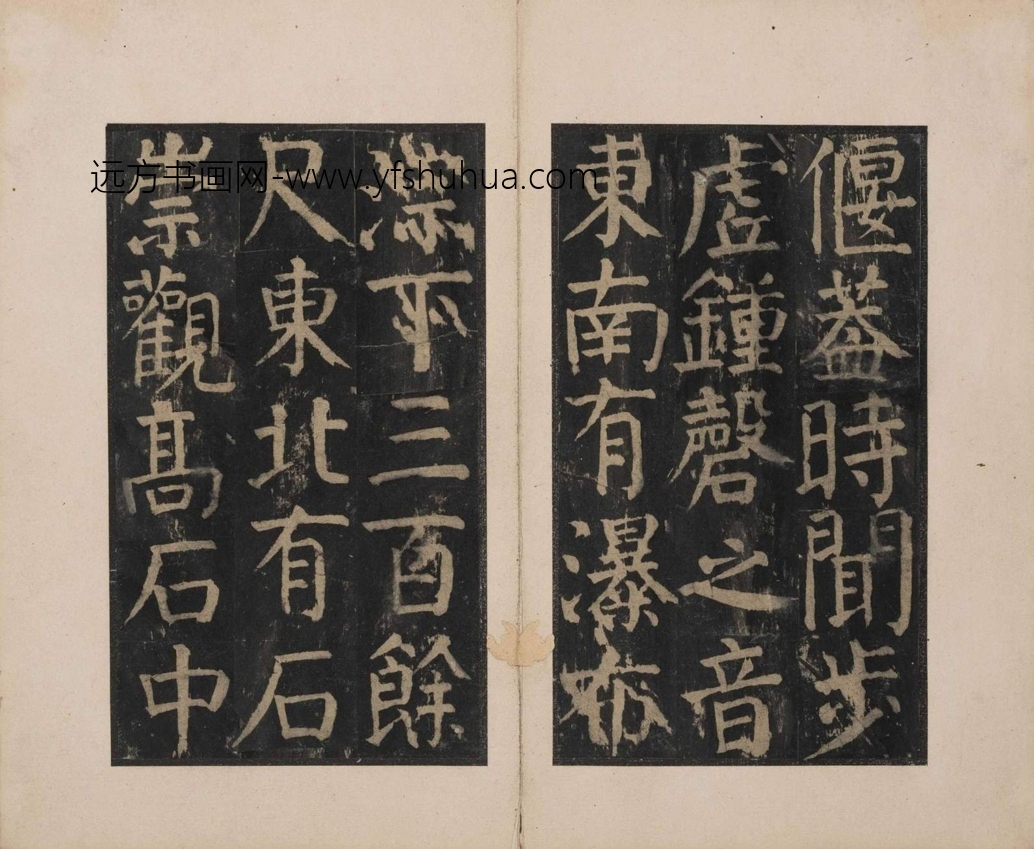 偃蓋時聞步
虛鍾磬之音
東南有瀑布
淙下三百餘
尺東北有石
崇觀髙石中
远方书画网-www.yfshuhua.com